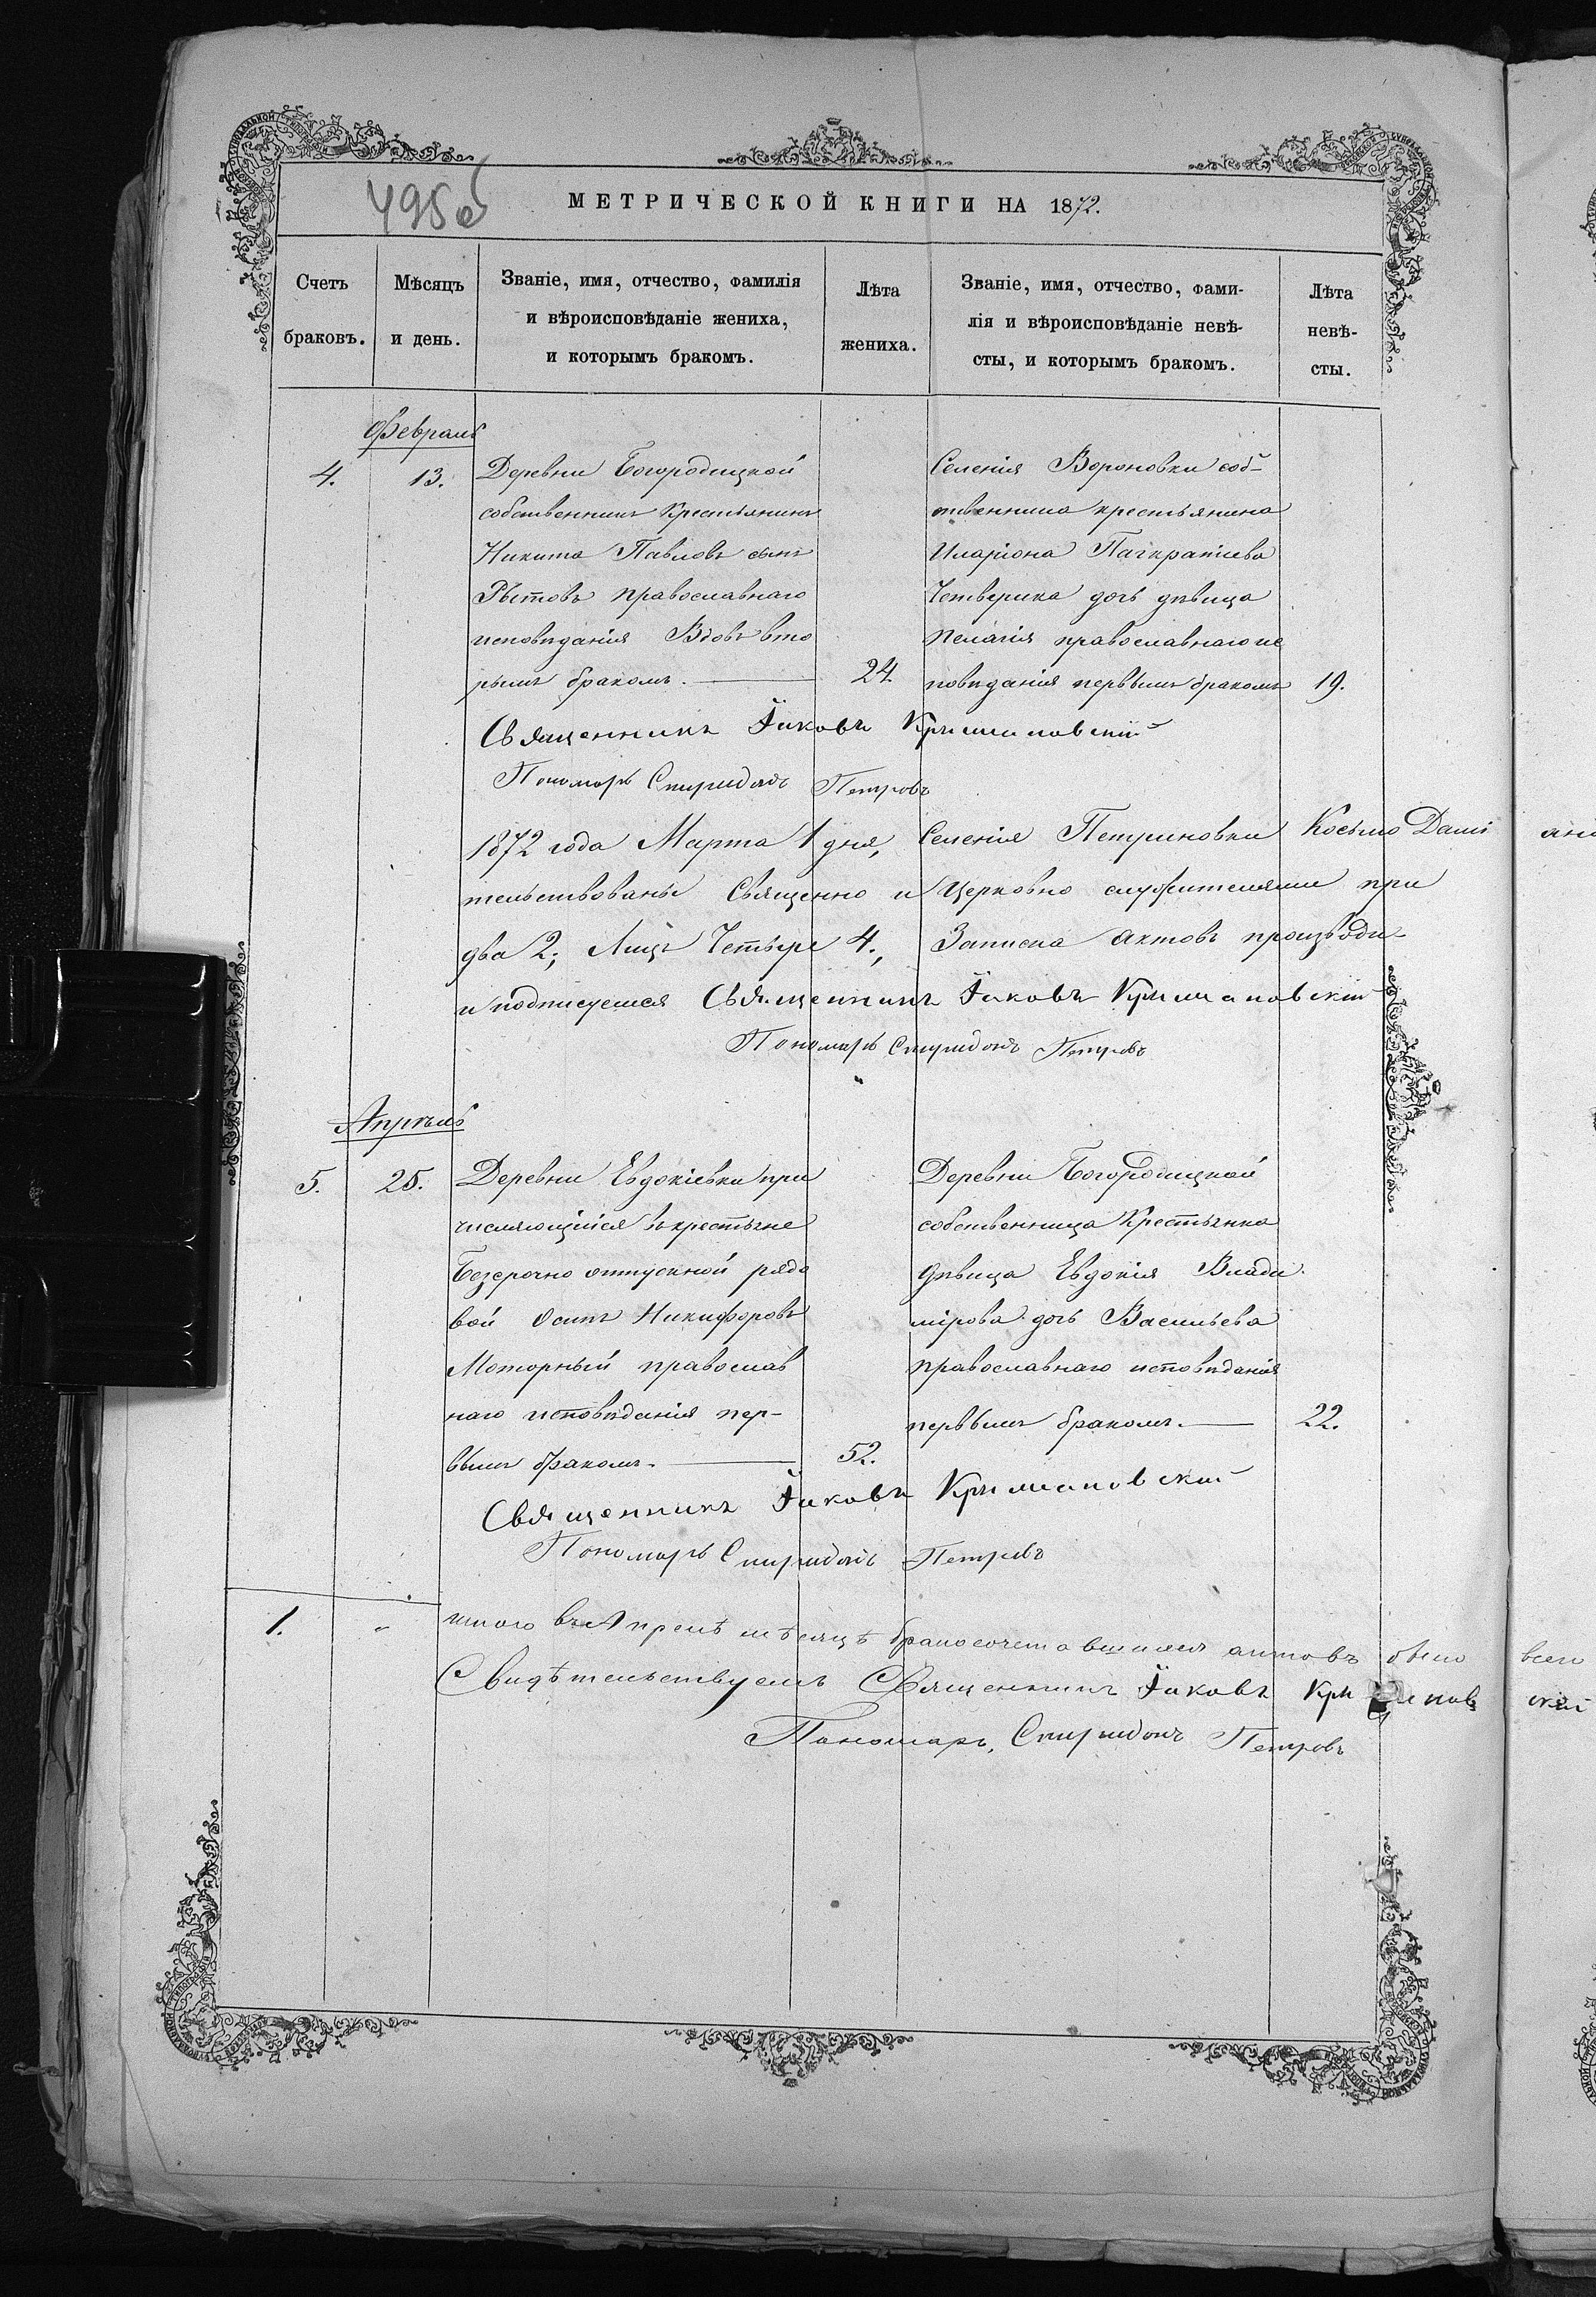 495об
МЕТРИЧЕСКОЙ КНИГИ НА 1872.
Счетъ браковъ.
Мѣсяцъ и день.
Званіе, имя, отчество, фамилія
и вѣроисповѣданіе жениха,
и которымъ бракомъ.
Лѣта жениха.
Званіе, имя, отчество, фами-
лія и вѣроисповѣданіе невѣ-
сты, и которымъ бракомъ.
Лѣта невѣ-
сты.
Февраль
4.
13.
Деревни Богородицкой
собственникъ Крестьянинъ
Никита Павловъ сынъ
Рытовъ православнаго
исповѣданія Вдовъ вто
рымъ бракомъ.
24.
Селенія Вороновки соб-
ственника крестьянина
Иларіона Панкратіева
Четверика дочь дѣвица
Пелагія православнаго ис
повѣданія первымъ бракомъ
19.
Священникъ Іаковъ Крыжановскій
Пономарь Спиридонъ Петровъ
1872 года Марта 1 дня, Селенія Петриковки Косьмо Дамі ано
тельствованы Священно и Церковно служителями при
два 2; Лицъ Четыре 4., Записка актовъ производи-
и подписуемся Священникъ Іаковъ Крыжановскій
Пономарь Спиридонъ Петровъ
Апрѣль
5.
25.
Деревни Евдокіевки при
числяющійся въ крестьяне
Безсрочно отпускной рядо
вой Осипъ Никифоровъ
Моторный православ
наго исповѣданія пер-
вымъ бракомъ.
52.
Деревни Богородицкой
собственница Крестьянка
дѣвица Евдокія Влади
мірова дочь Васильева
православнаго исповѣданія
первымъ бракомъ.
22.
Священникъ Іаковъ Крыжановскій
Пономарь Спиридонъ Петровъ
1.
"
итого въ Апрелѣ мѣсяцѣ бракосочетавшихся актовъ было всего
Свидѣтельствуемъ Священникъ Іаковъ Крыжановскій
Пономарь, Спиридонъ Петровъ